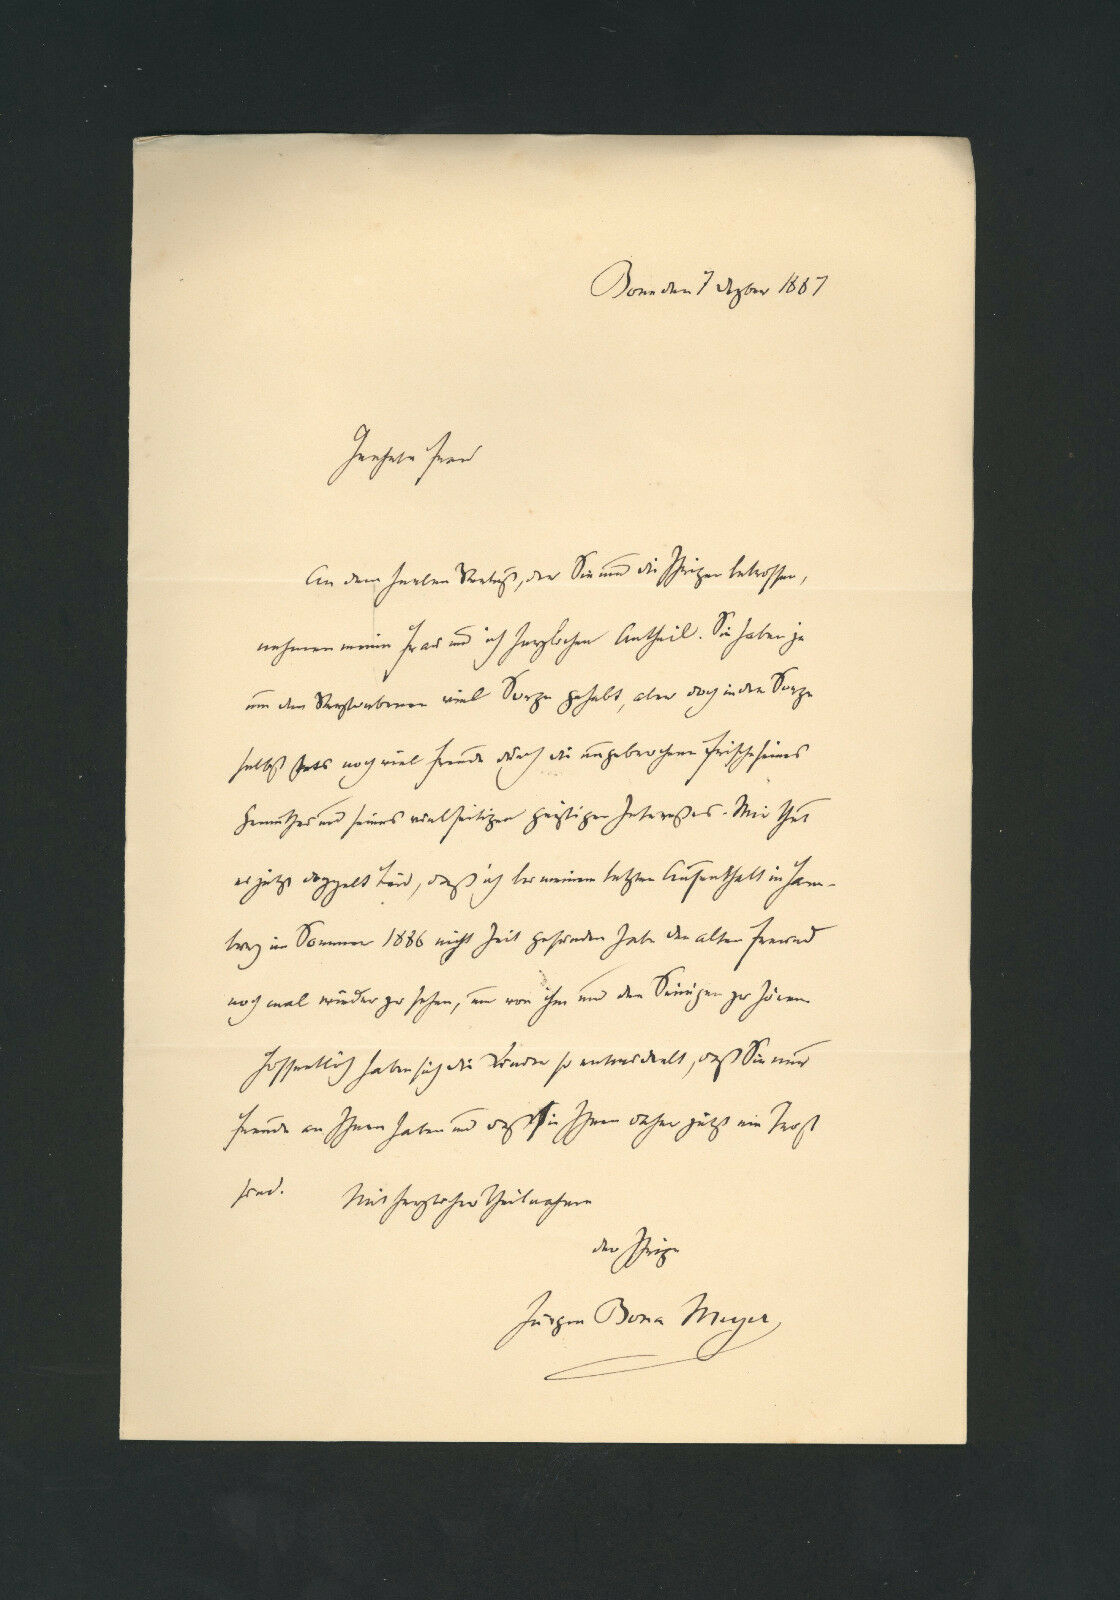 Bonn den 7 Dezber 1887
Geehrte Frau
An dem herben Verlust, der Sie und die Ihrigen betroffen,
nehmen meine Frau und ich herzlichen Antheil. Sie haben ja
um den Verstorbenen viel Sorge gehabt, aber doch in der Sorge
selbst stets noch viel Freude durch die ungebrochene Frische seines
Gemüthes und seines vielseitigen geistigen Interesses. Mir thut
es jetzt doppelt leid, daß ich bei meinem letzten Aufenthalt in Ham-
burg im Sommer 1886 nicht Zeit gefunden habe den alten Freund
noch mal wieder zu sehen, um von ihm und den Seinigen zu hören.
Hoffentlich haben sich die Kinder so entwickelt, daß Sie nur
Freude an Ihnen haben und daß sie Ihnen daher jetzt ein Trost
sind. Mit herzlicher Theilnahme
der Ihrige
Jürgen Bona Meyer